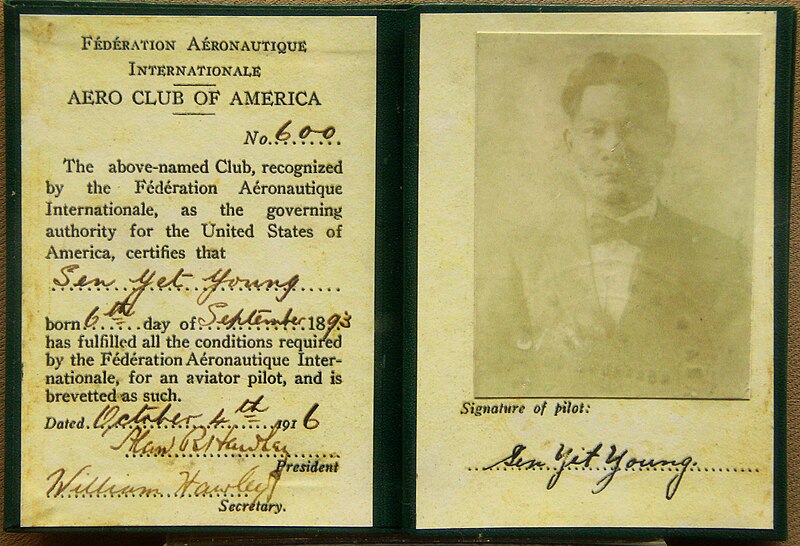 FÉDÉRATION AÉRONAUTIQUE
INTERNATIONALE
AERO CLUB OF AMERICA
No. 600
The above-named Club, recognized
by the Fédération Aéronautique
Internationale, as the governing
authority for the United States of
America, certifies that
Sen Yet Young
born 6th day of September 1893
has fulfilled all the conditions required
by the Fédération Aéronautique Inter-
nationale, for an aviator pilot, and is
brevetted as such.
Dated October 4th 1916
Alan R Hawley
President
William Hawley
Secretary.
Signature of pilot:
Sen Yet Young.